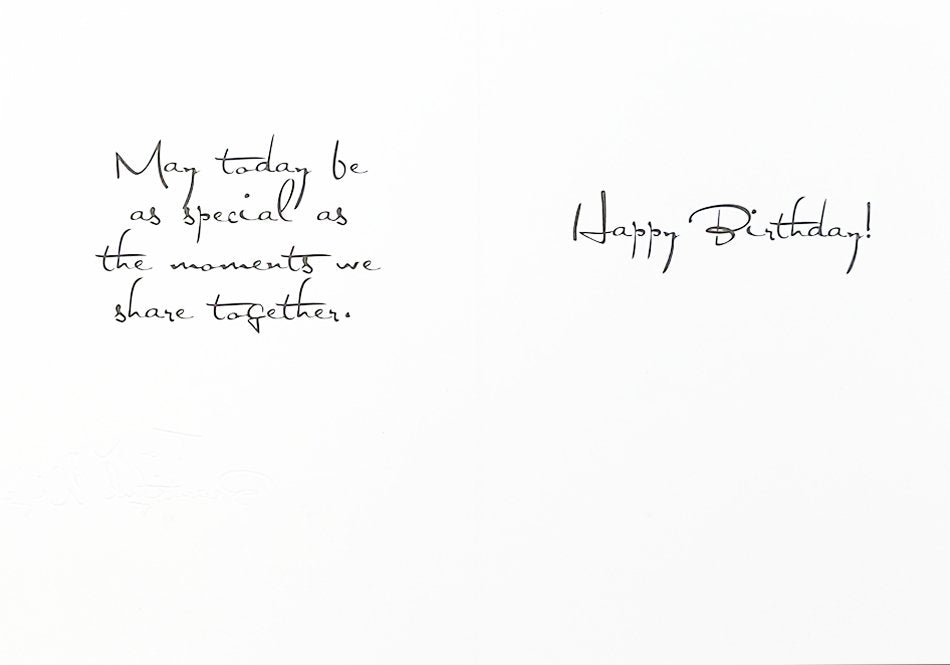 May today be
as special as
the moments we
share together.
Happy Birthday!